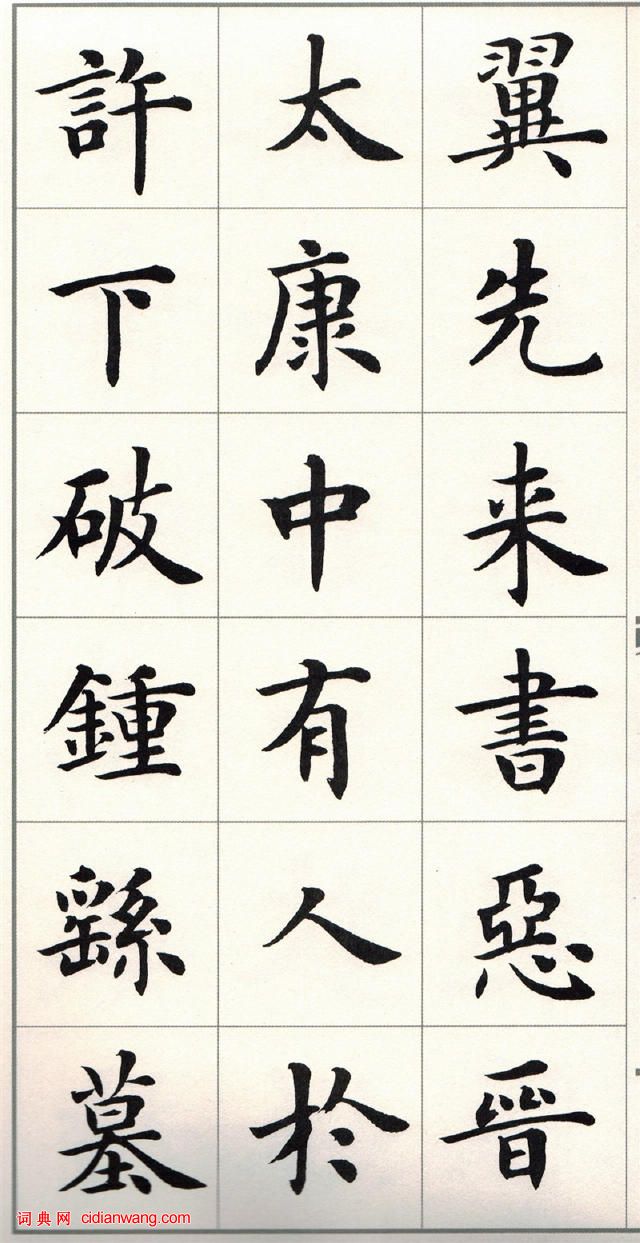 翼先来書惡晉
太康中有人於
許下破鍾繇墓
词典网 cidianwang.com